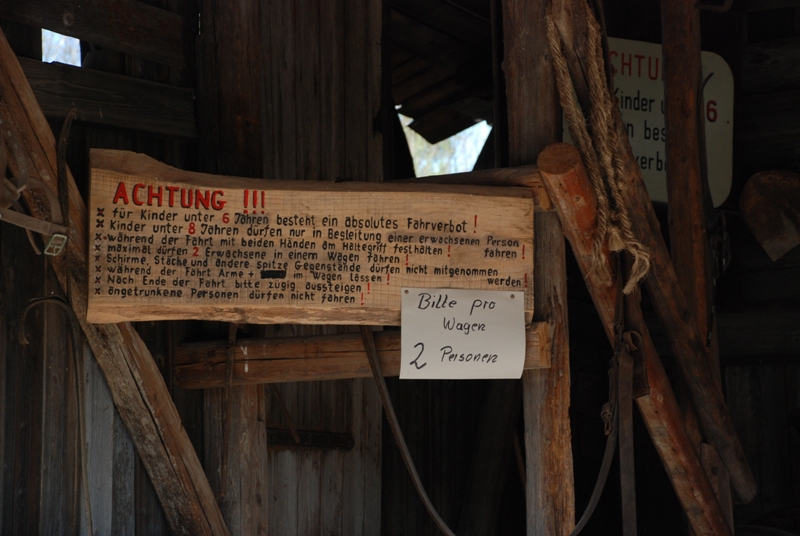 ACHTUNG !!!
x für Kinder unter 6 Jahren besteht ein absolutes Fahrverbot !
x Kinder unter 8 Jahren dürfen nur in Begleitung einer erwachsenen Person fahren !
x während der Fahrt mit beiden Händen am Haltegriff festhalten !
x maximal dürfen 2 Erwachsene in einem Wagen fahren !
x Schirme, Stöcke und andere spitze Gegenstände dürfen nicht mitgenommen werden !
x während der Fahrt Arme + im Wagen lassen !
x Nach Ende der Fahrt bitte zügig aussteigen !
x angetrunkene Personen dürfen nicht fahren !
Bitte pro
Wagen
2 Personen
CHTU
Kinder u 6
n bes
verb